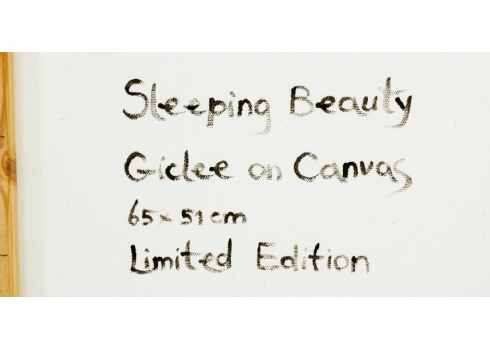 Sleeping Beauty
Giclee on Canvas
65x51cm
Limited Edition